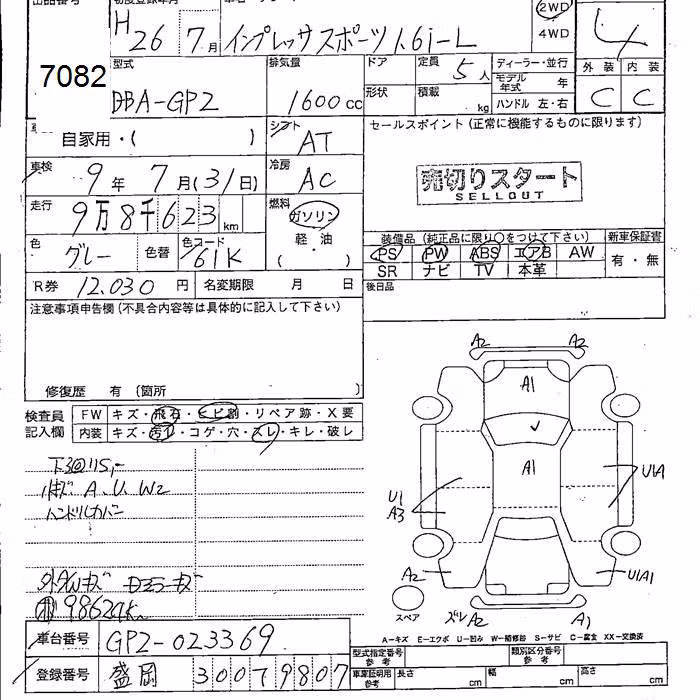 H 26 7月 インプレッサスポーツ 1.6i-L 2WD 4WD 4
7082
型式 DBA-GP2 排気量 1600cc ドア 形状 定員 5人 積載 kg ディーラー・並行 モデル年式 年 ハンドル 左・右 外装 C 内装 C
自家用・( ) シフト AT
セールスポイント(正常に機能するものに限ります)
車検 9年7月(31日) 冷房 AC
売切りスタート
SELLOUT
走行 9万8千623km 燃料 ガソリン 軽油 ( )
色 グレー 色替 色コード 61K
装備品(純正品に限り○をつけて下さい) 新車保証書
PS PW ABS エアB AW 有・無
SR ナビ TV 本革
R券 12,030円 名変期限 月 日
後日品
注意事項申告欄(不具合内容等は具体的に記入して下さい)
修復歴 有(箇所
検査員記入欄 FW キズ・飛石・ヒビ割・リペア跡・X要
内装 キズ・汚れ・コゲ・穴・スレ・キレ・破レ
A2 A2
A1
A1
U1 A3
U1A1
A2
U1A1
スペア
ズレ A2 A1
A.U W2
ハンドルカバー
98624K
A-キズ E-エクボ U-凹み W-補修跡 S-サビ C-腐食 XX-交換済
車台番号 GP2-023369
型式指定番号 参考 類別区分番号 参考
登録番号 盛岡 300 79807
車庫証明用 参考 長さ cm 幅 cm 高さ cm